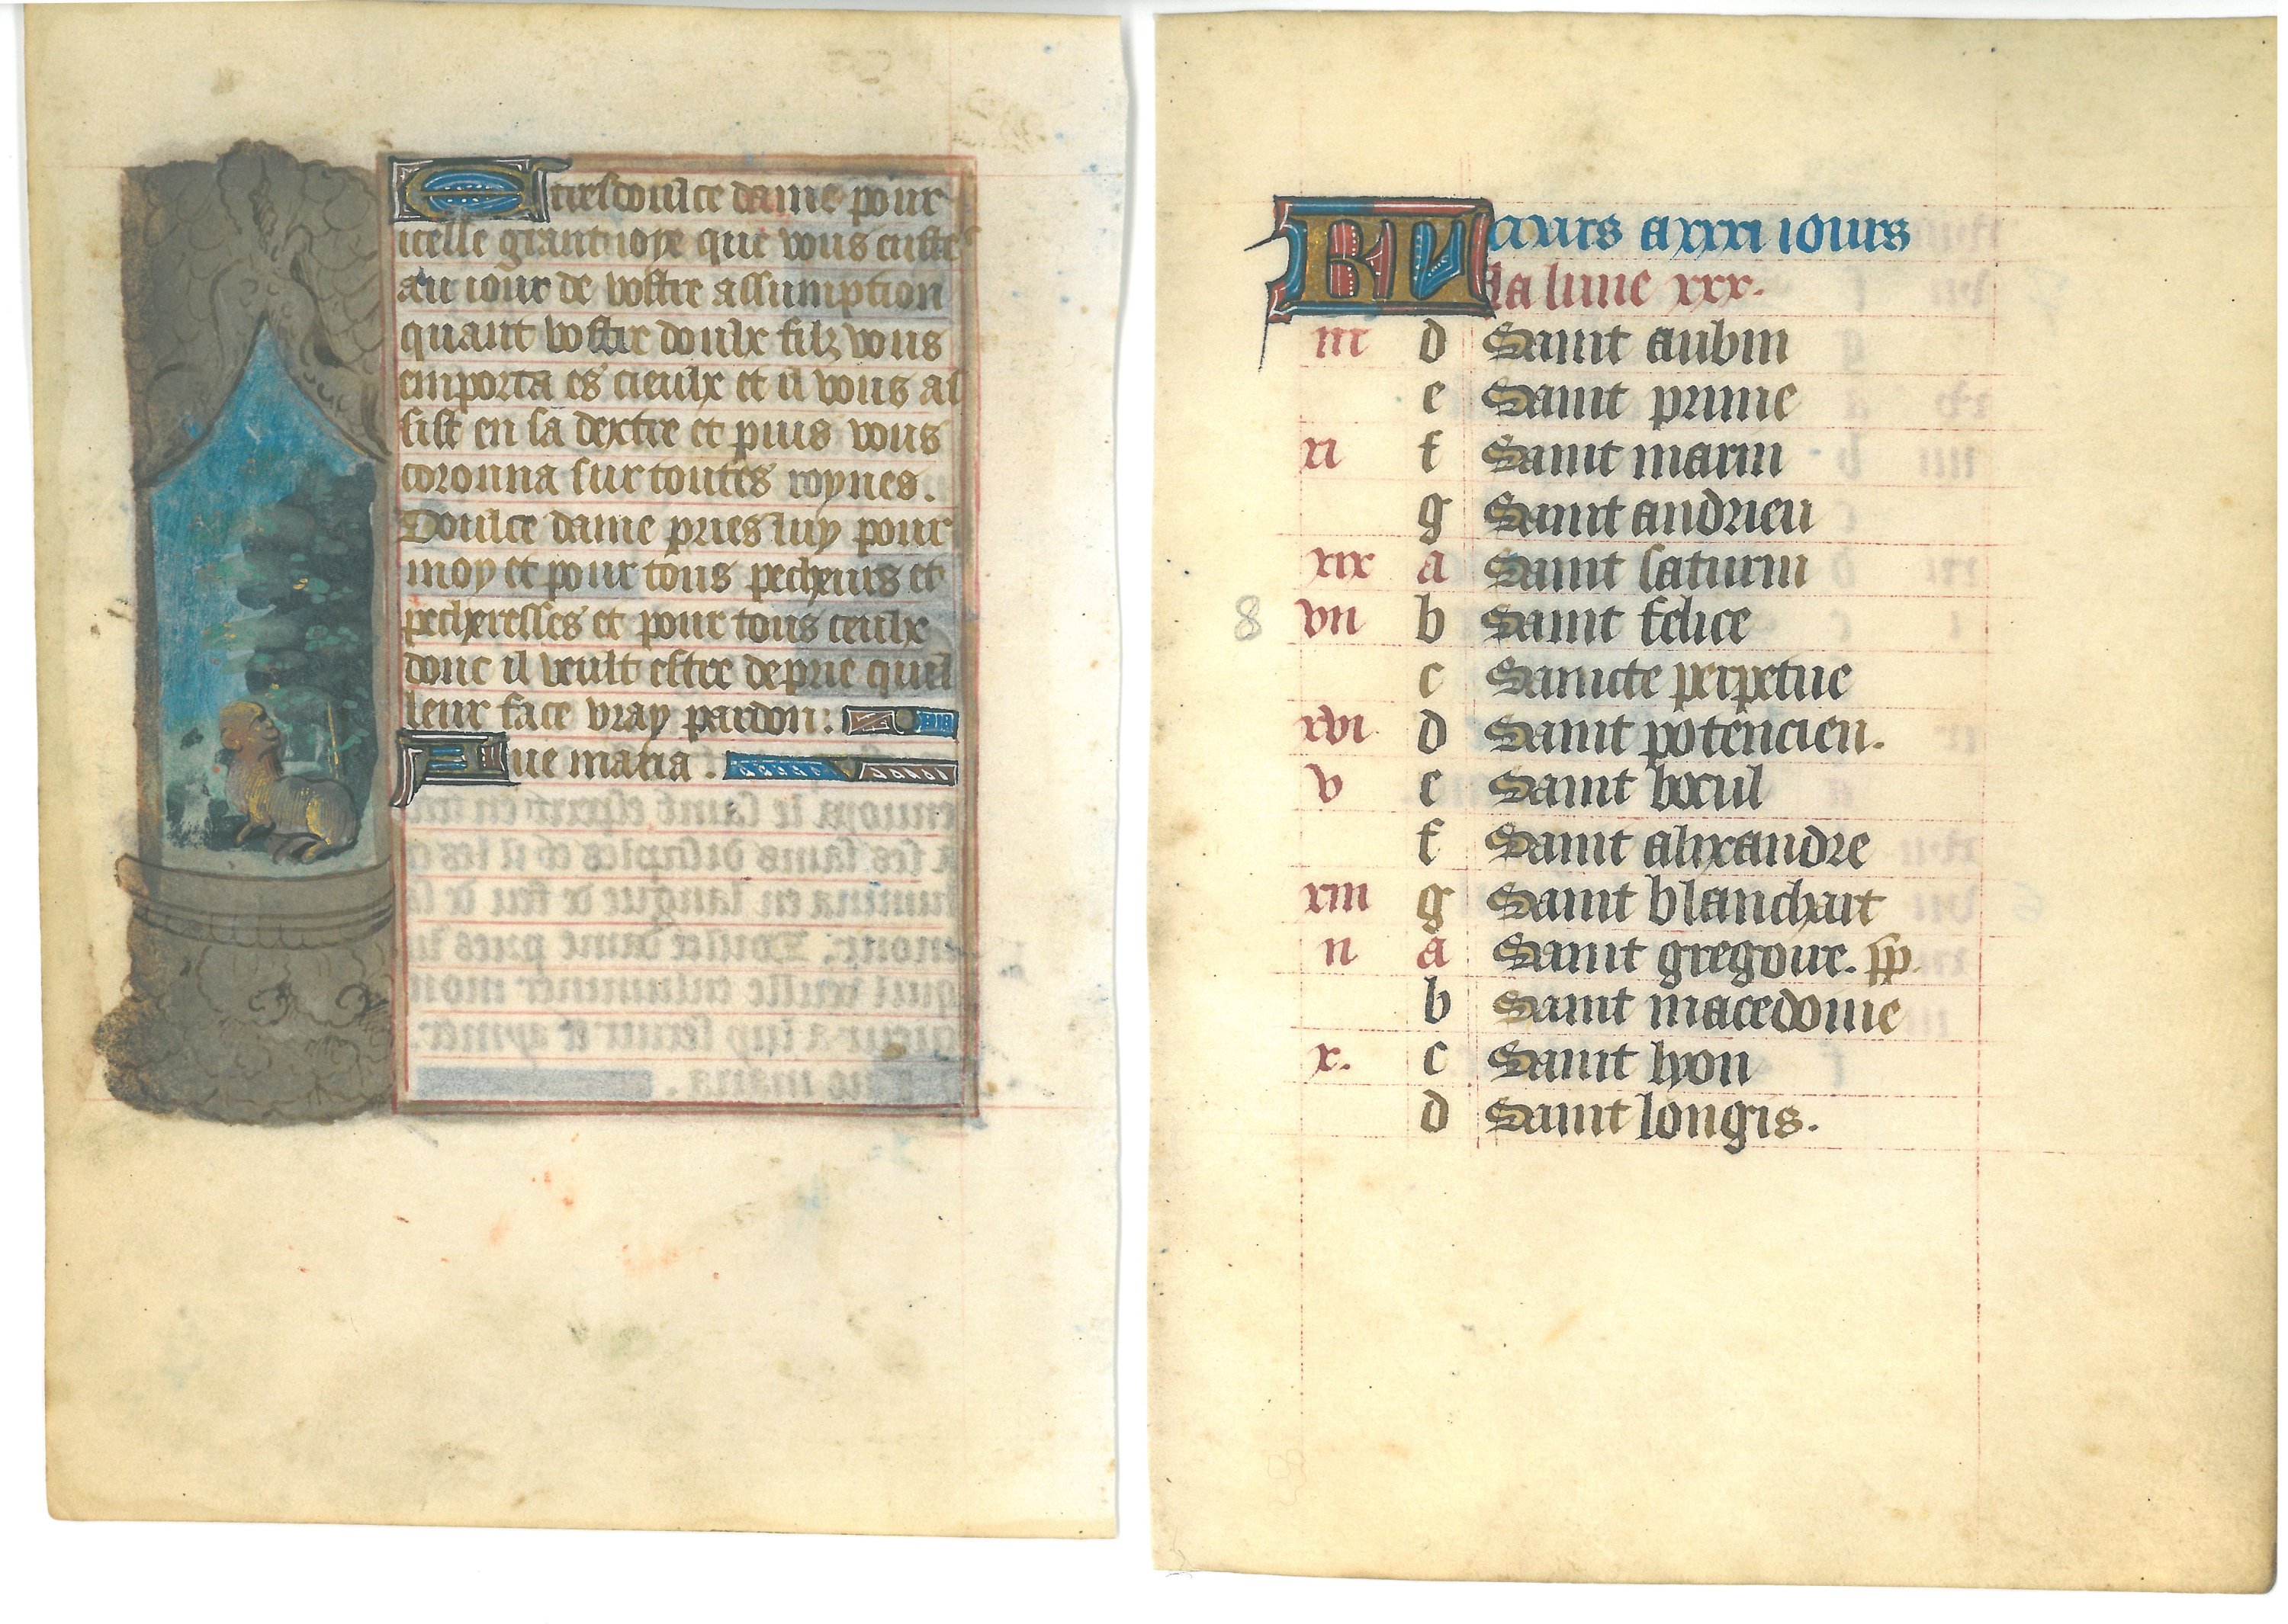 E tresdoulce dame pour
icelle grant ioye que vous eustes
au iour de vostre assumption
quant vostre doulx filz vous
emporta es cieulx et il vous as
sist en sa dextre et puis vous
coronna sur toutes roynes.
Doulce dame pries luy pour
moy et pour tous pecheurs et
pecheresses et pour tous ceulx
donc il veult estre deprie quil
leur face vray pardon:
Aue maria.
Mars a xxxi iours
la lune xxx.
iii d Saint aubin
e Saint prime
xi f Saint marin
g Saint andrieu
xix a Saint saturin
8 viii b Saint felice
c Saincte perpetue
xvi d Saint potencien.
v e Saint
f Saint alixandre
xiii g Saint blanchart
ii a Saint gregoire. pp.
b Saint macedonie
x. c Saint lyon
d Saint longis.